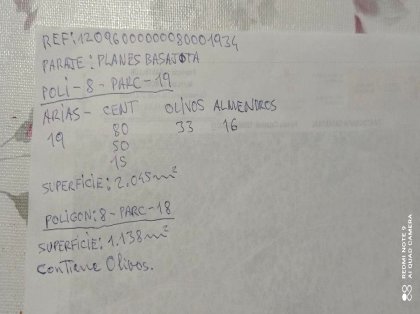 REF: 12096000000080001934
PARAJE: PLANES BASAJOTA
POLI-8-PARC-19
ARIAS- CENT OLIVOS ALMENDROS
19 80 33 16
50
15
SUPERFICIE: 2.045 m²
POLIGON: 8-PARC-18
SUPERFICIE: 1.138 m²
Contiene Olivos.
REDMI NOTE 9
AI QUAD CAMERA